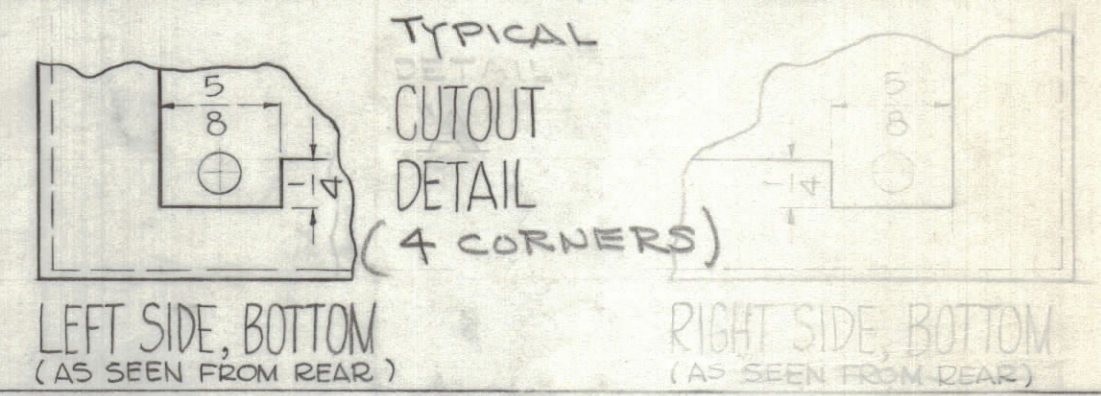 TYPICAL
DETAIL
CUTOUT
DETAIL
(4 CORNERS)
5
8
1
4
LEFT SIDE, BOTTOM
(AS SEEN FROM REAR)
5
8
1
4
RIGHT SIDE, BOTTOM
(AS SEEN FROM REAR)